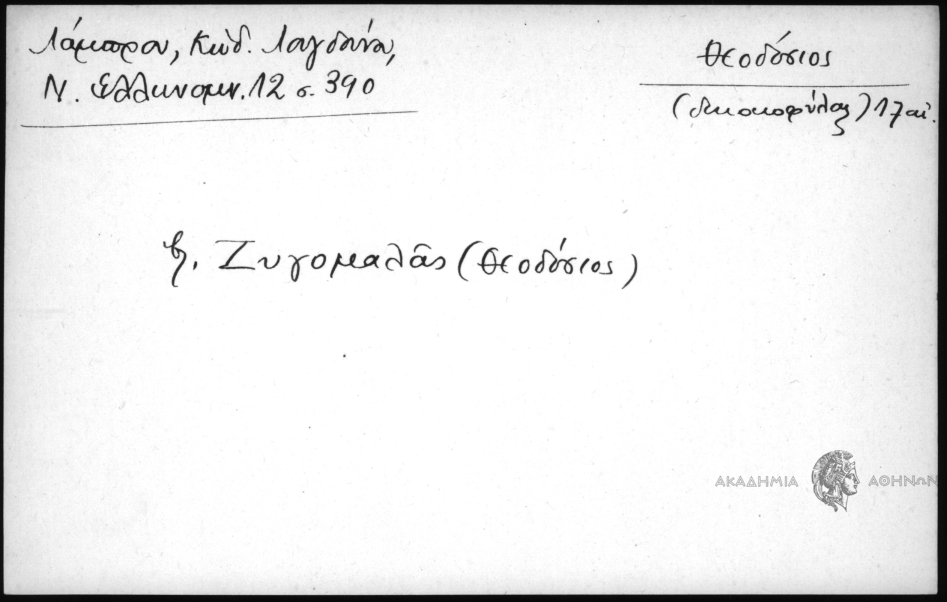 Λάμπρου, Κώδ. Λουγδούνου,
Ν. Ελληνομν. 12 σ. 390
Θεοδόσιος
(δικαιοφύλαξ) 17 αἰ.
βλ. Ζυγομαλᾶς (Θεοδόσιος)
ΑΚΑΔΗΜΙΑ ΑΘΗΝΩΝ